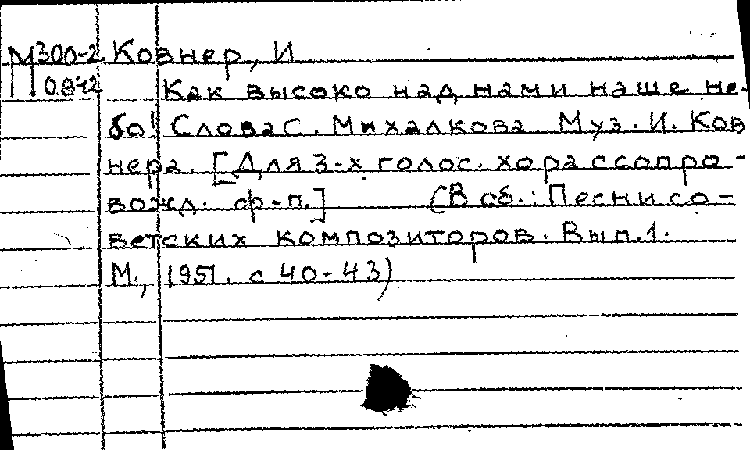 М300-2 Ковнер, И
0842 Как высоко над нами наше не-
бо! Слова С. Михалкова Муз. И. Ков
нера. [Для 3-х голос. хора с сопро-
вожд. ф-п.] (В сб.: Песни со-
ветских композиторов. Вып. 1.
М., 1951. с 40-43)